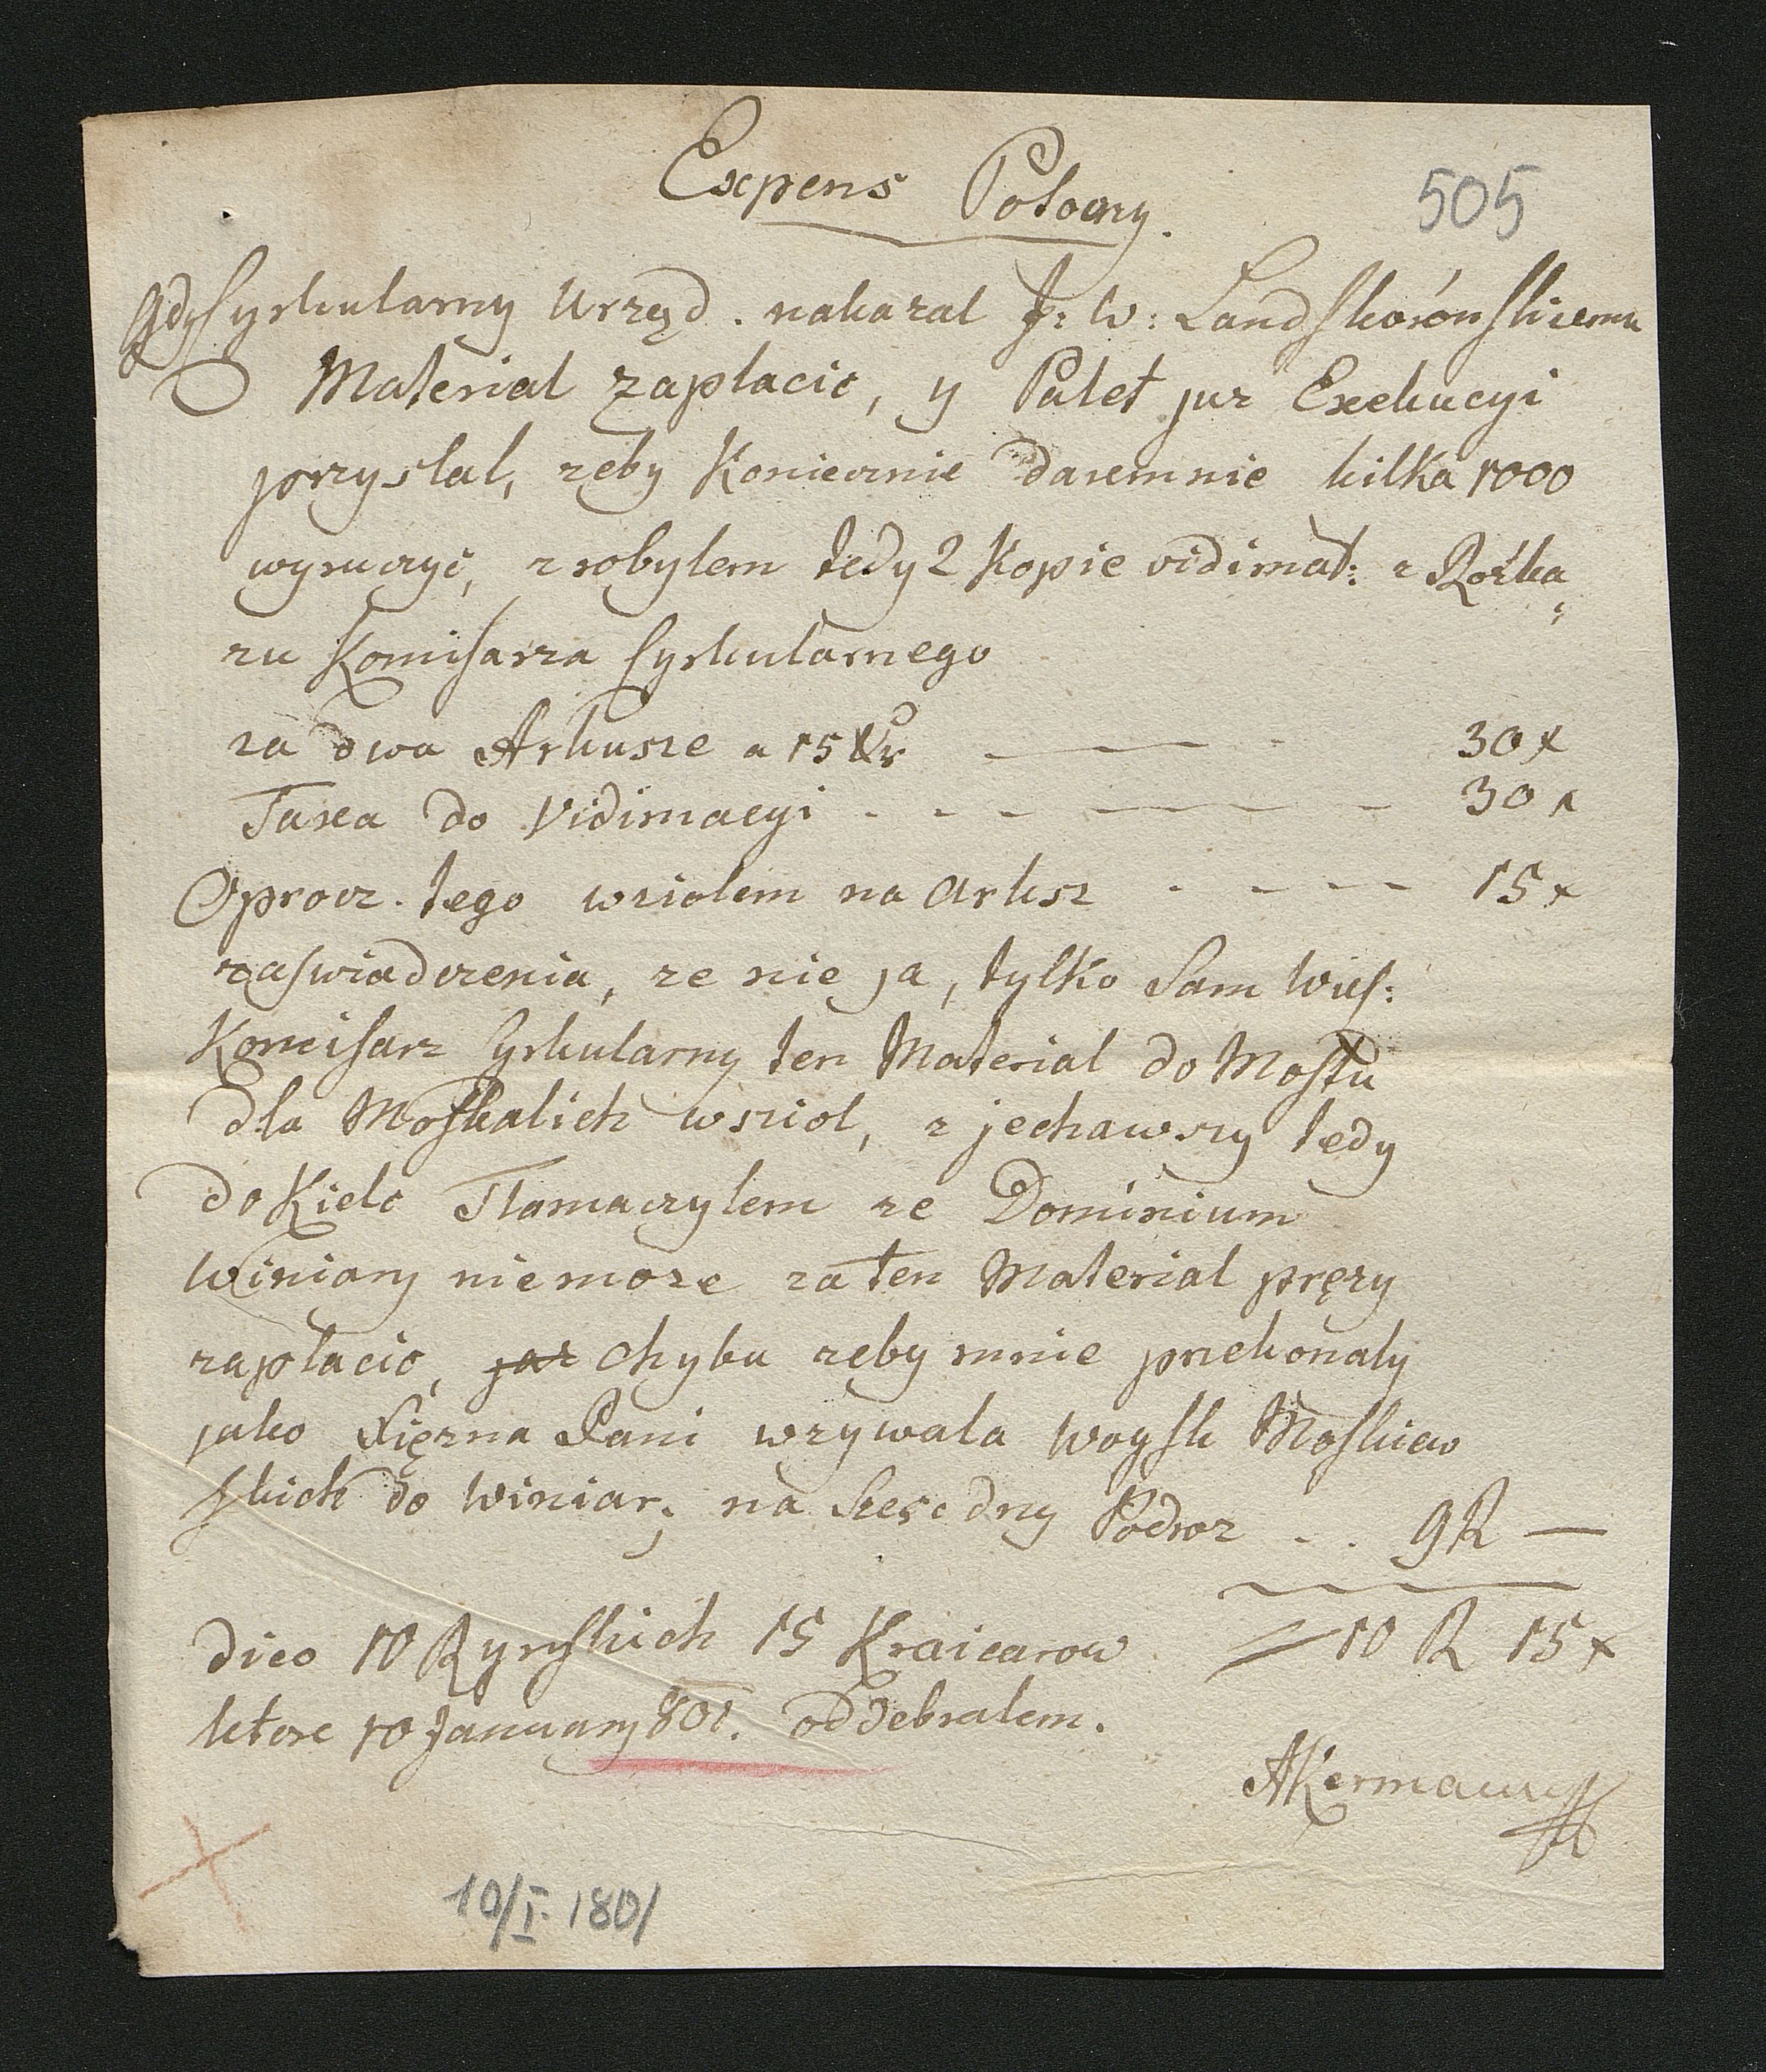 Expens Potoczny.
505
Gdy Cyrkularny Urząd. nakazal J: W: Landskorońskiemu
Material zaplacic, y Palet juz Exekucyi
przyslal, zęby Koniecznie daremnie kilka 1000
wyruczyć, zrobylem tedy 2 Kopie vidimat: z Rózka„
zu Komisarza Cyrkularnego
za dwa Arkusze a 15 Xr — 30 x
Taxa do Vidimacyi - - - — 30 x
Oprocz tego wziolem na Arksz - - - - 15 x
zaswiadczenia, ze nie ja, tylko Sam Wief:
Komisarz Cyrkularny ten Material do Mostu
dla Moskalich wziol, zjechawszy tedy
do Kielc Tlomaczylem ze Dominium
Winiary niemoze za ten Material pręzy
zaplacic, jaz chyba zęby mnie przekonaly
jako Xięzna Pani wzywala woysk Moskiew
skich do Winiar; na szesc dny Podroz . . 9 R —
= 10 R 15 x
dico 10 Rynskich 15 Kraicarow
ktore 10 January 801. oddebralem.
AKermann
10/I. 1801